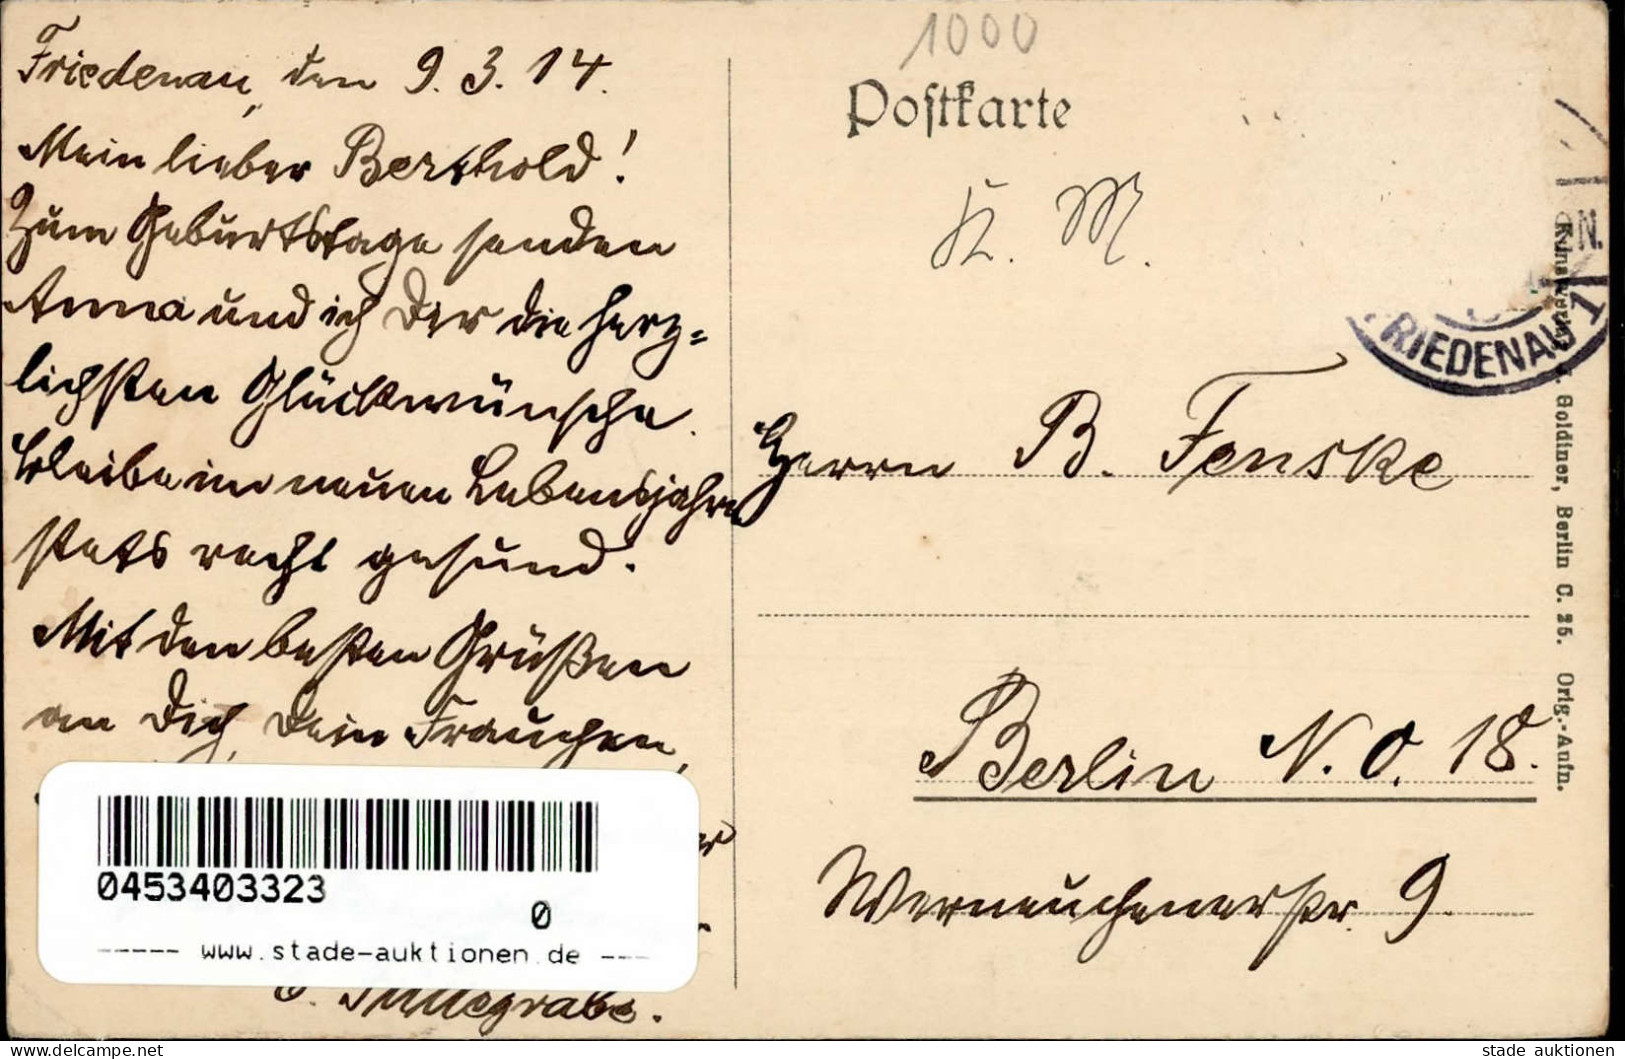 Friedenau, den 9. 3. 14.
Mein lieber Berthold!
Zum Geburtstage senden
Anna und ich Dir die herz=
lichsten Glückwünsche.
Bleibe im neuen Lebensjahre
stets recht gesund.
Mit den besten Grüßen
an Dich, Dein Frauchen,
0453403323
0
----- www.stade-auktionen.de ---
1000
Postkarte
K. M.
FRIEDENAU 1
Herrn B. Fenske
Berlin N. O. 18.
Werneuchenerstr. 9.
Goldiner, Berlin C. 25. Orig.-Aufn.
https://www.delcampe.net
stade auktionen